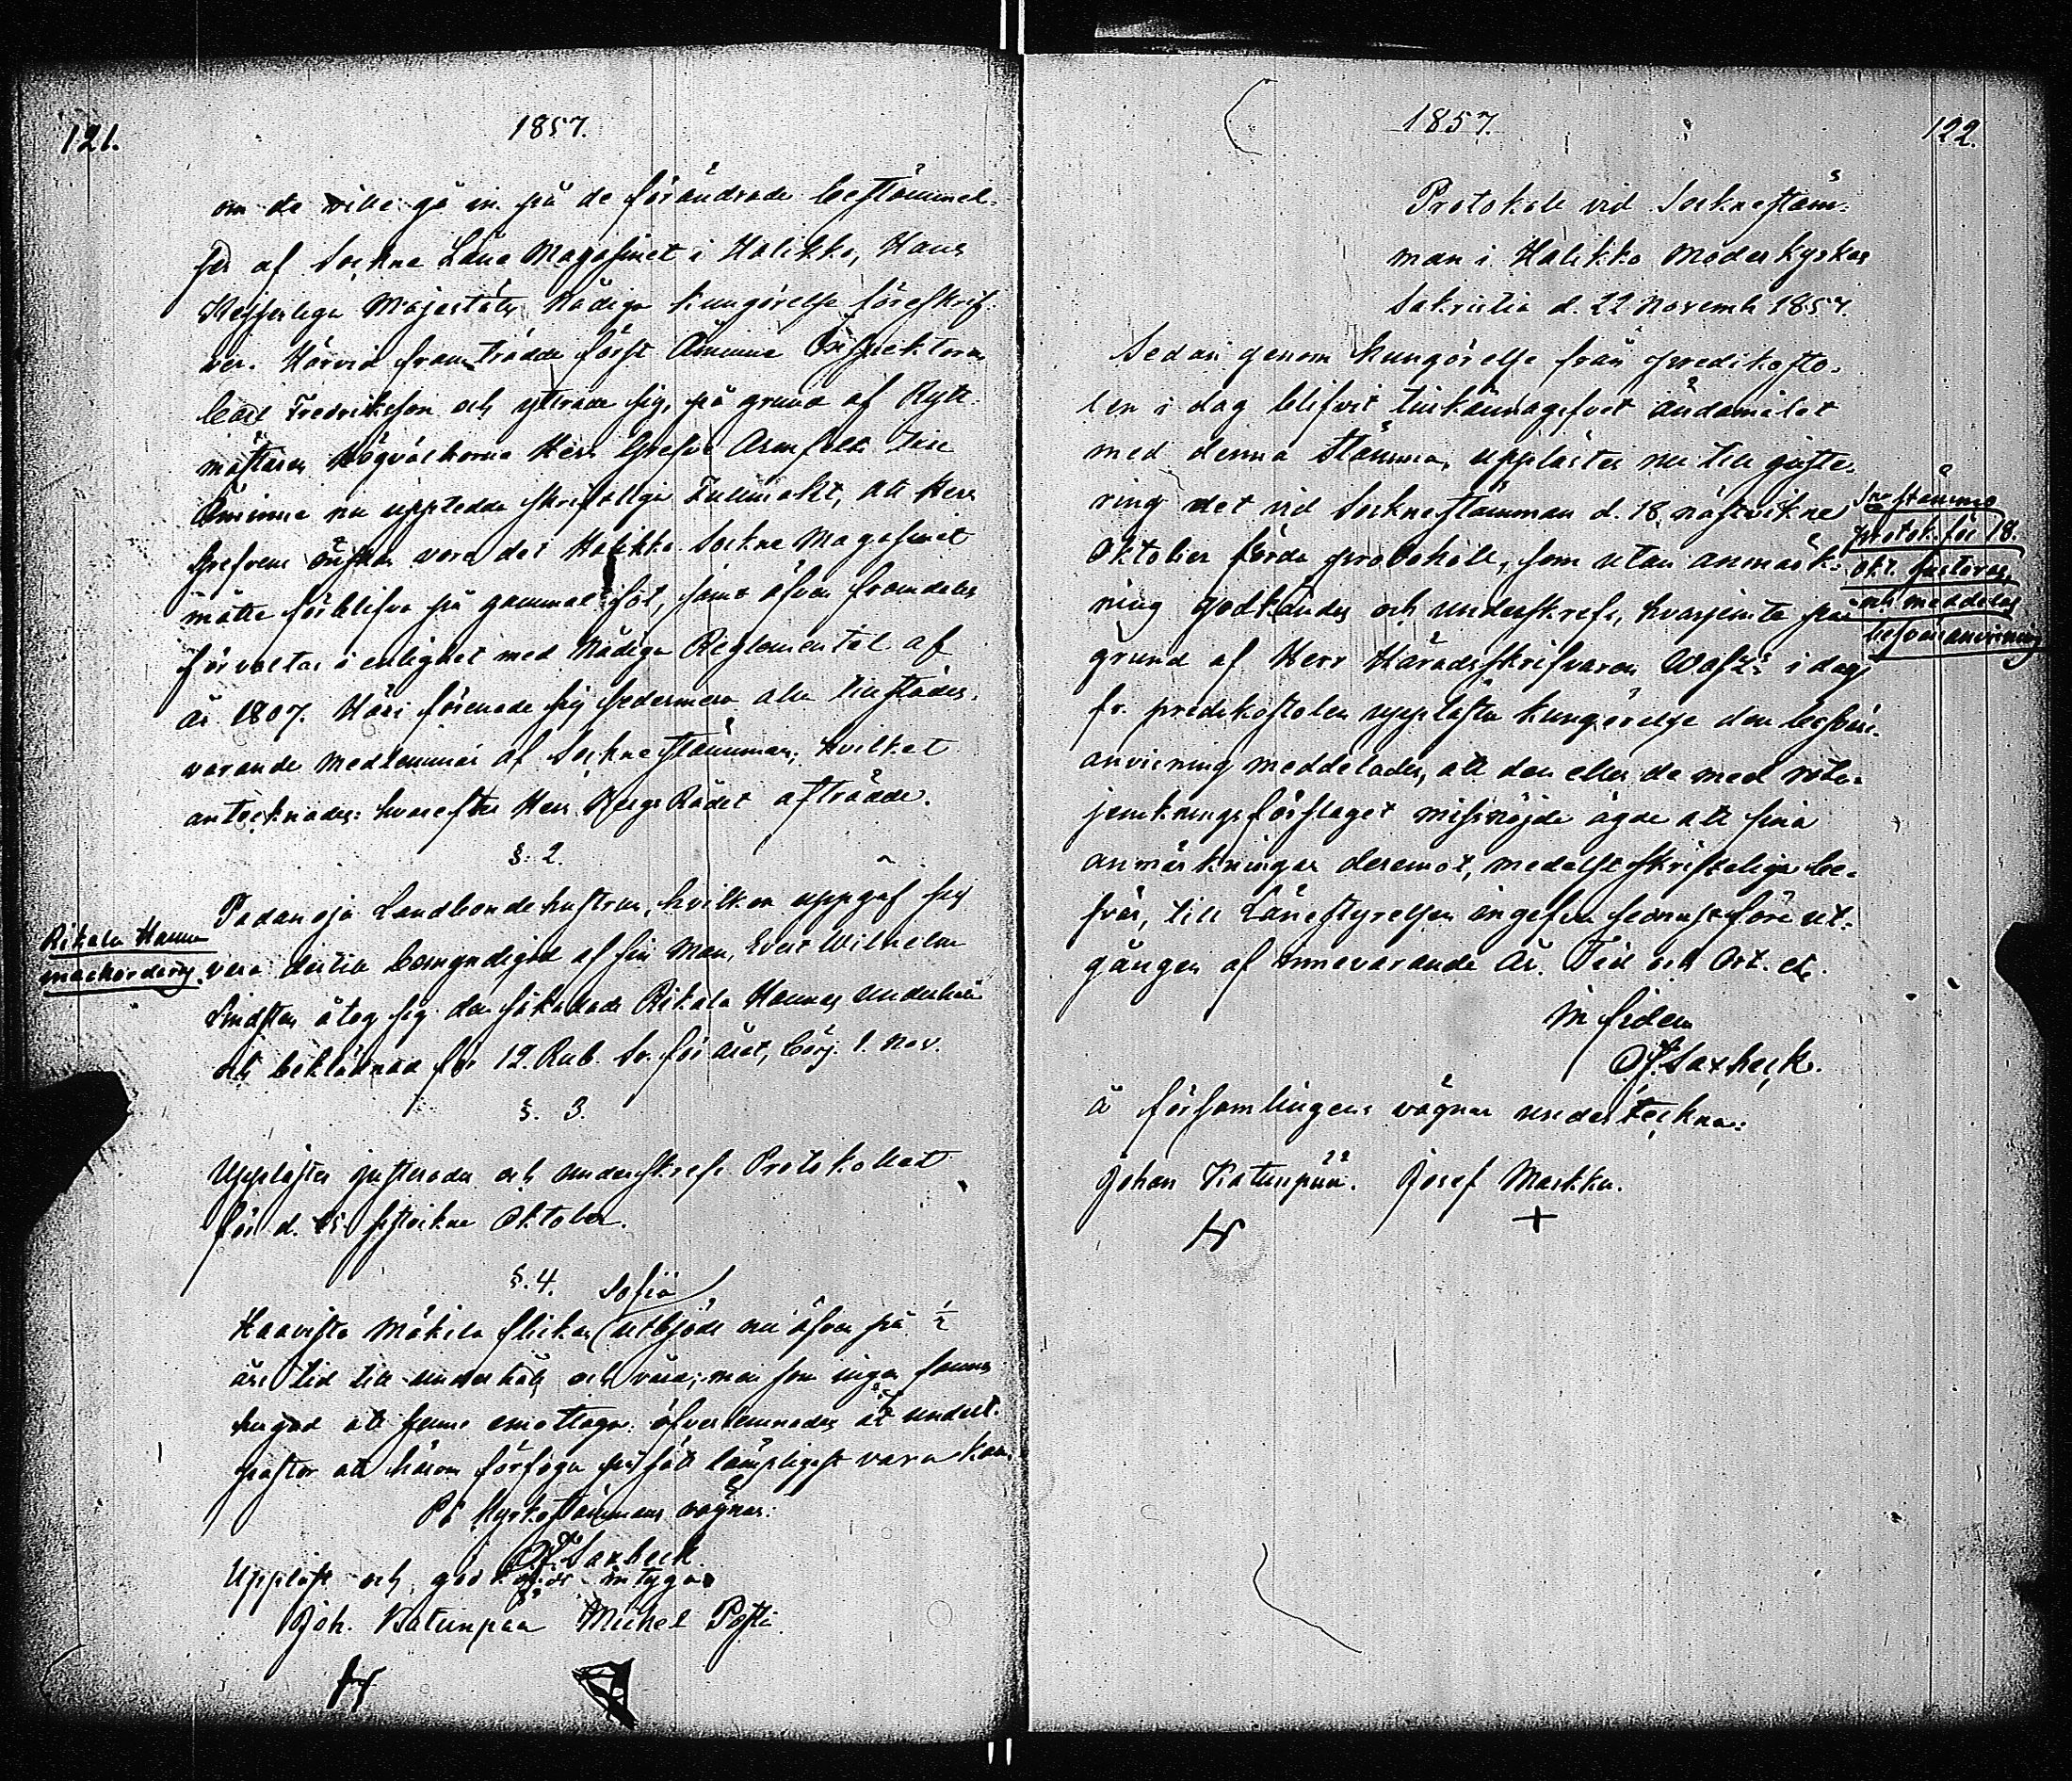 121.
1857.
om de ville gå in på de förändrade bestämmel-
ser af Sockne Låne Magasinet i Halikko, Hans
Kejserliga Majestäts Nådiga Kungörelse föreskrif-
ver. Härvid framträdde först Åminne Inspektoren
Carl Fredriksson och yttrade sig, på grund af Rytt-
mästaren Högvälborne Herr Grefve Armfelts till
Åminne nu uppteedda skriftliga Fullmakt, att Herr
Grefvens önskan vore det Halikko Sockne Magasinet
måtte förblifva på gammal fot, samt äfven framdeles
förvaltas i enlighet med Nådiga Reglementet af
år 1807. Häri förenade sig sedermera alla tillstädes-
varande medlemmar af Sockne stämman; hvilket
antecknades: hvarefter Herr Krigs Rådet afträdde.
§. 2.
Rikala Hanna
inackordering.
Padanoja Landbonde hustrun, hvilken uppgaf sig
vara dertill bemyndigad af sin Man, Evert Wilhelm
Lindsten åtog sig den sjuka Rikala Hannas underhåll
och beklädnad för 12. Rub. Sr. för året, börj. 1. Nov.
§. 3.
Upplästes justerades och underskrefs Protokollet
för d. 18 sistvikne Oktober.
§. 4.
Haavisto Mäkilä flickan Sofia utbjöds nu äfven på ½
års tid till underhåll och vård; men som ingen fanns
hugad att henne emottaga: öfverlemnades åt undert.
pastor att härom förfoga på sätt lämpligast vara kan.
På Kyrkostämmans vägnar:
Of. Saxbeck.
Uppläst och godkändt intyga
Joh. Katunpää Michel Posti.
1857.
122.
Protokoll vid Socknestäm-
man i Halikko Moderkyrkas
Sakristia d. 22 Novemb 1857.
Sedan genom Kungörelse från predikosto-
len i dag blifvit tillkännagifvet ändamålet
med denna stämma, upplästes nu till juste-
ring det vid Socknestämman d. 18 nästvikne
Oktober förda protokoll, som utan anmärk-
ning godkändes och underskrefs, hvarjemte på
grund af Herr Häradsskrifvaren i dag
fr. predikostolen upplästa kungörelse den besvärs-
anvisning meddelades, att den eller de med rote-
jemkningsförslaget missnöjde ägde att sina
anmärkningar deremot, medelst skriftelige be-
svär, till Länestyrelsen ingifva sednast före ut-
gången af innevarande År. Tid och Ort. etc.
Snestämmo
protok. för 18.
okt. justeras,
och meddelas
besvärsanvisning
In fidem
Of. Saxbeck.
å församlingens vägnar underteckna:
Johan Katunpää. Josef Markku.